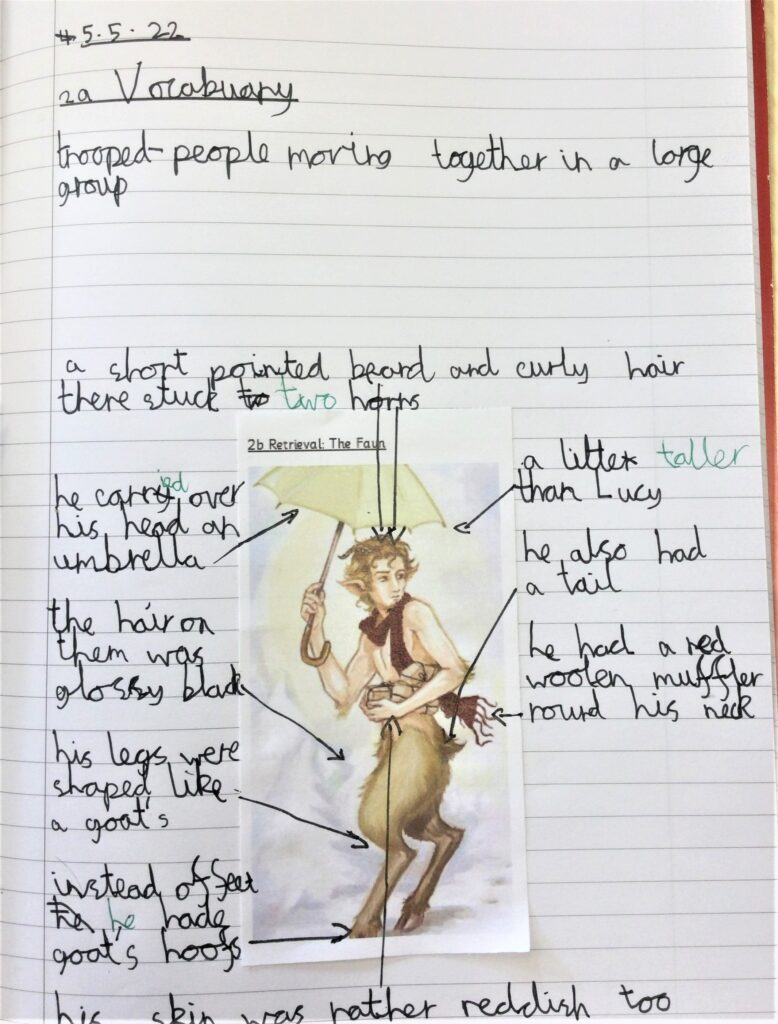 5.5.22
2a Vocabuary
trooped- people moving together in a large
group
a short pointed beard and curly hair
there stuck to two horns
2b Retrieval: The Faun
he carryied over
his head an
umbrella
the hair on
them was
glossy black
his legs were
shaped like
a goat's
instead of feet
he hade
goat's hoofs
a litter taller
than Lucy
he also had
a tail
he had a red
woolen muffler
round his neck
his skin was rather reddish too